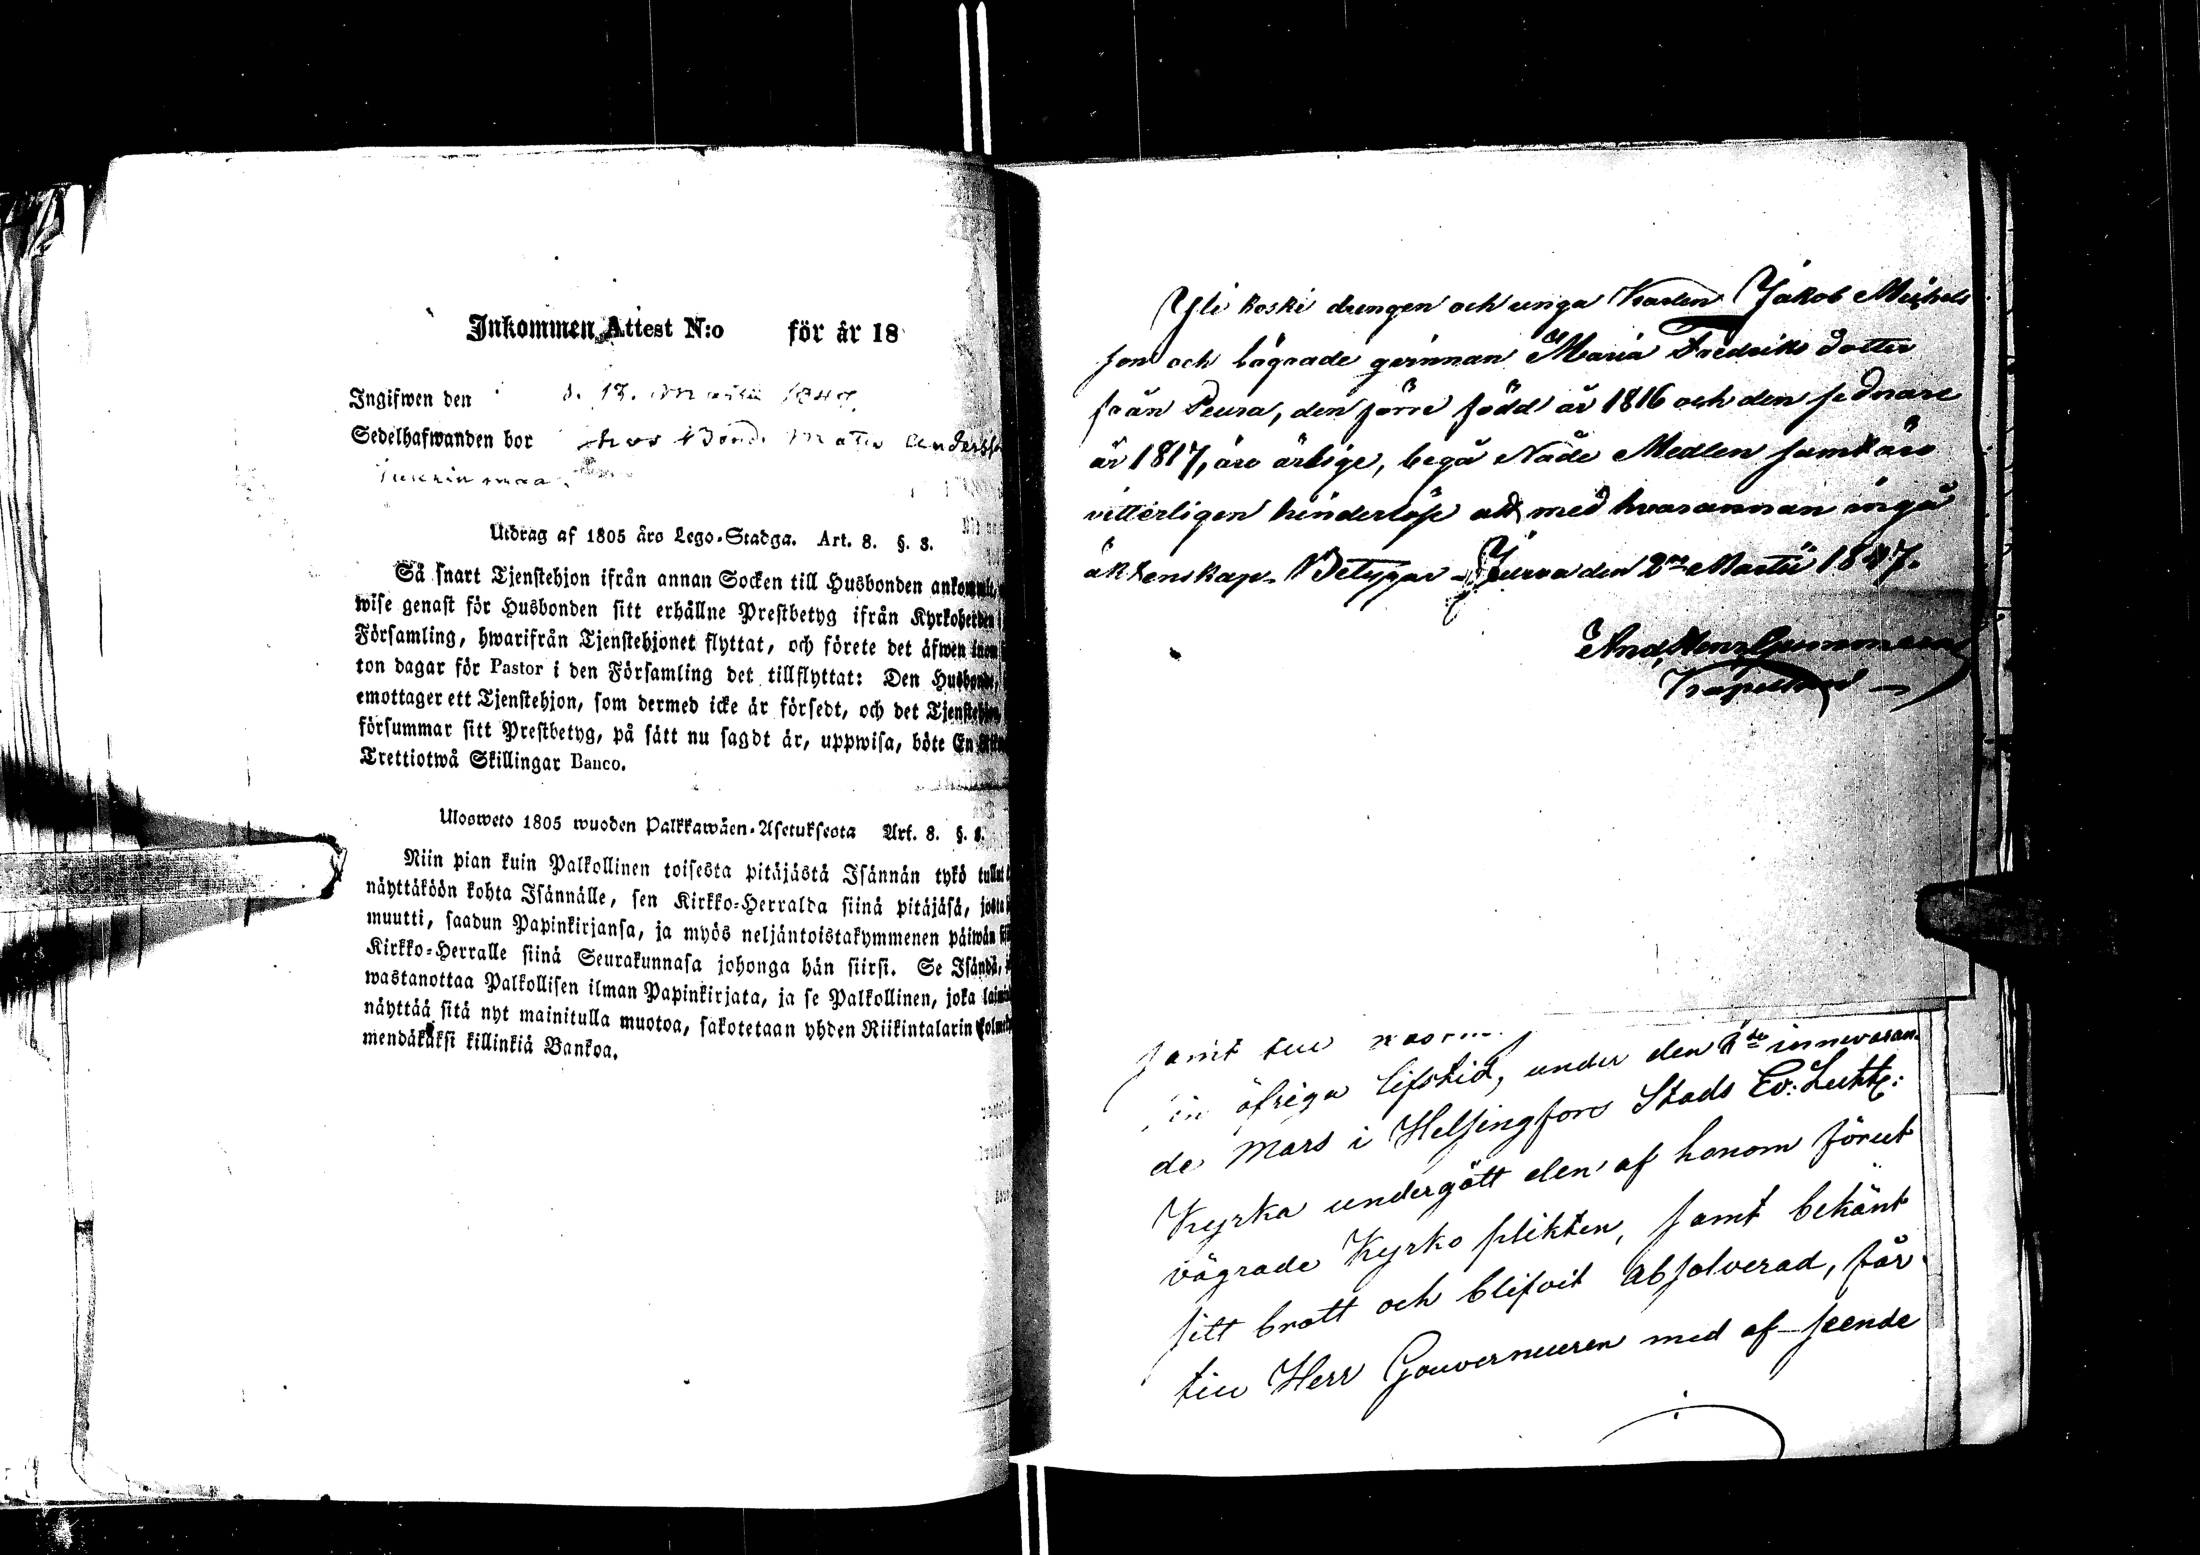 Inkommen Attest N:o för år 18
Ingifwen den d. 17. Martii 1847
Sedelhafwanden bor hos Bond. Matts Anderss
Utdrag af 1805 års Lego-Stadga. Art. 8. §. 8.
Så snart Tjenstehjon ifrån annan Socken till Husbonden
wise genast för Husbonden sitt erhållne Prestbetyg ifrån Kyrkoherden
Församling, hwarifrån Tjenstehjonet flyttat, och förete det äfwen inom
ton dagar för Pastor i den Församling det tillflyttat: Den Husbonde,
emottager ett Tjenstehjon, som dermed icke är försedt, och det Tjenstehjon,
försummar sitt Prestbetyg, på sätt nu sagdt är, uppwisa, böte En
Trettiotwå Skillingar Banco.
Uloosweto 1805 wuoden Palkkawäen-Asetuksesta Art. 8. §. 8.
Niin pian kuin Palkollinen toisesta pitäjästä Isännän tykö tullut
näyttäköön kohta Isännälle, sen Kirkko-Herralda siinä pitäjäsä, josta
muutti, saadun Papinkirjansa, ja myös neljäntoistakymmenen päiwän
Kirkko-Herralle siinä Seurakunnasa johonga hän siirsi. Se Isändä,
wastanottaa Palkollisen ilman Papinkirjata, ja se Palkollinen, joka
näyttää sitä nyt mainitulla muotoa, sakotetaan yhden Riikintalarin
mendäkaksi killinkiä Bankoa.
Yli koski drengen och unga Karlen Jakob Michels
son och lägrade qvinnan Maria Fredriks dotter
från Peura, den förre född år 1816 och den sednare
år 1817, äro ärlige, begå Nåde Medlen samt äro
vitterligen hinderlöse att med hvarannan ingå
äktenskap. Betygar Jurva den 2 Martii 1847.
Kapellan
samt till
sin öfriga lifstid, under den 1de innevaran
de Mars i Helsingfors Stads Ev: Luth:
Kyrka undergått den af honom förut
vägrade Kyrko plikten, samt bekänt
sitt brott och blifvit absolverad, får
till Herr Gouverneuren med af-seende